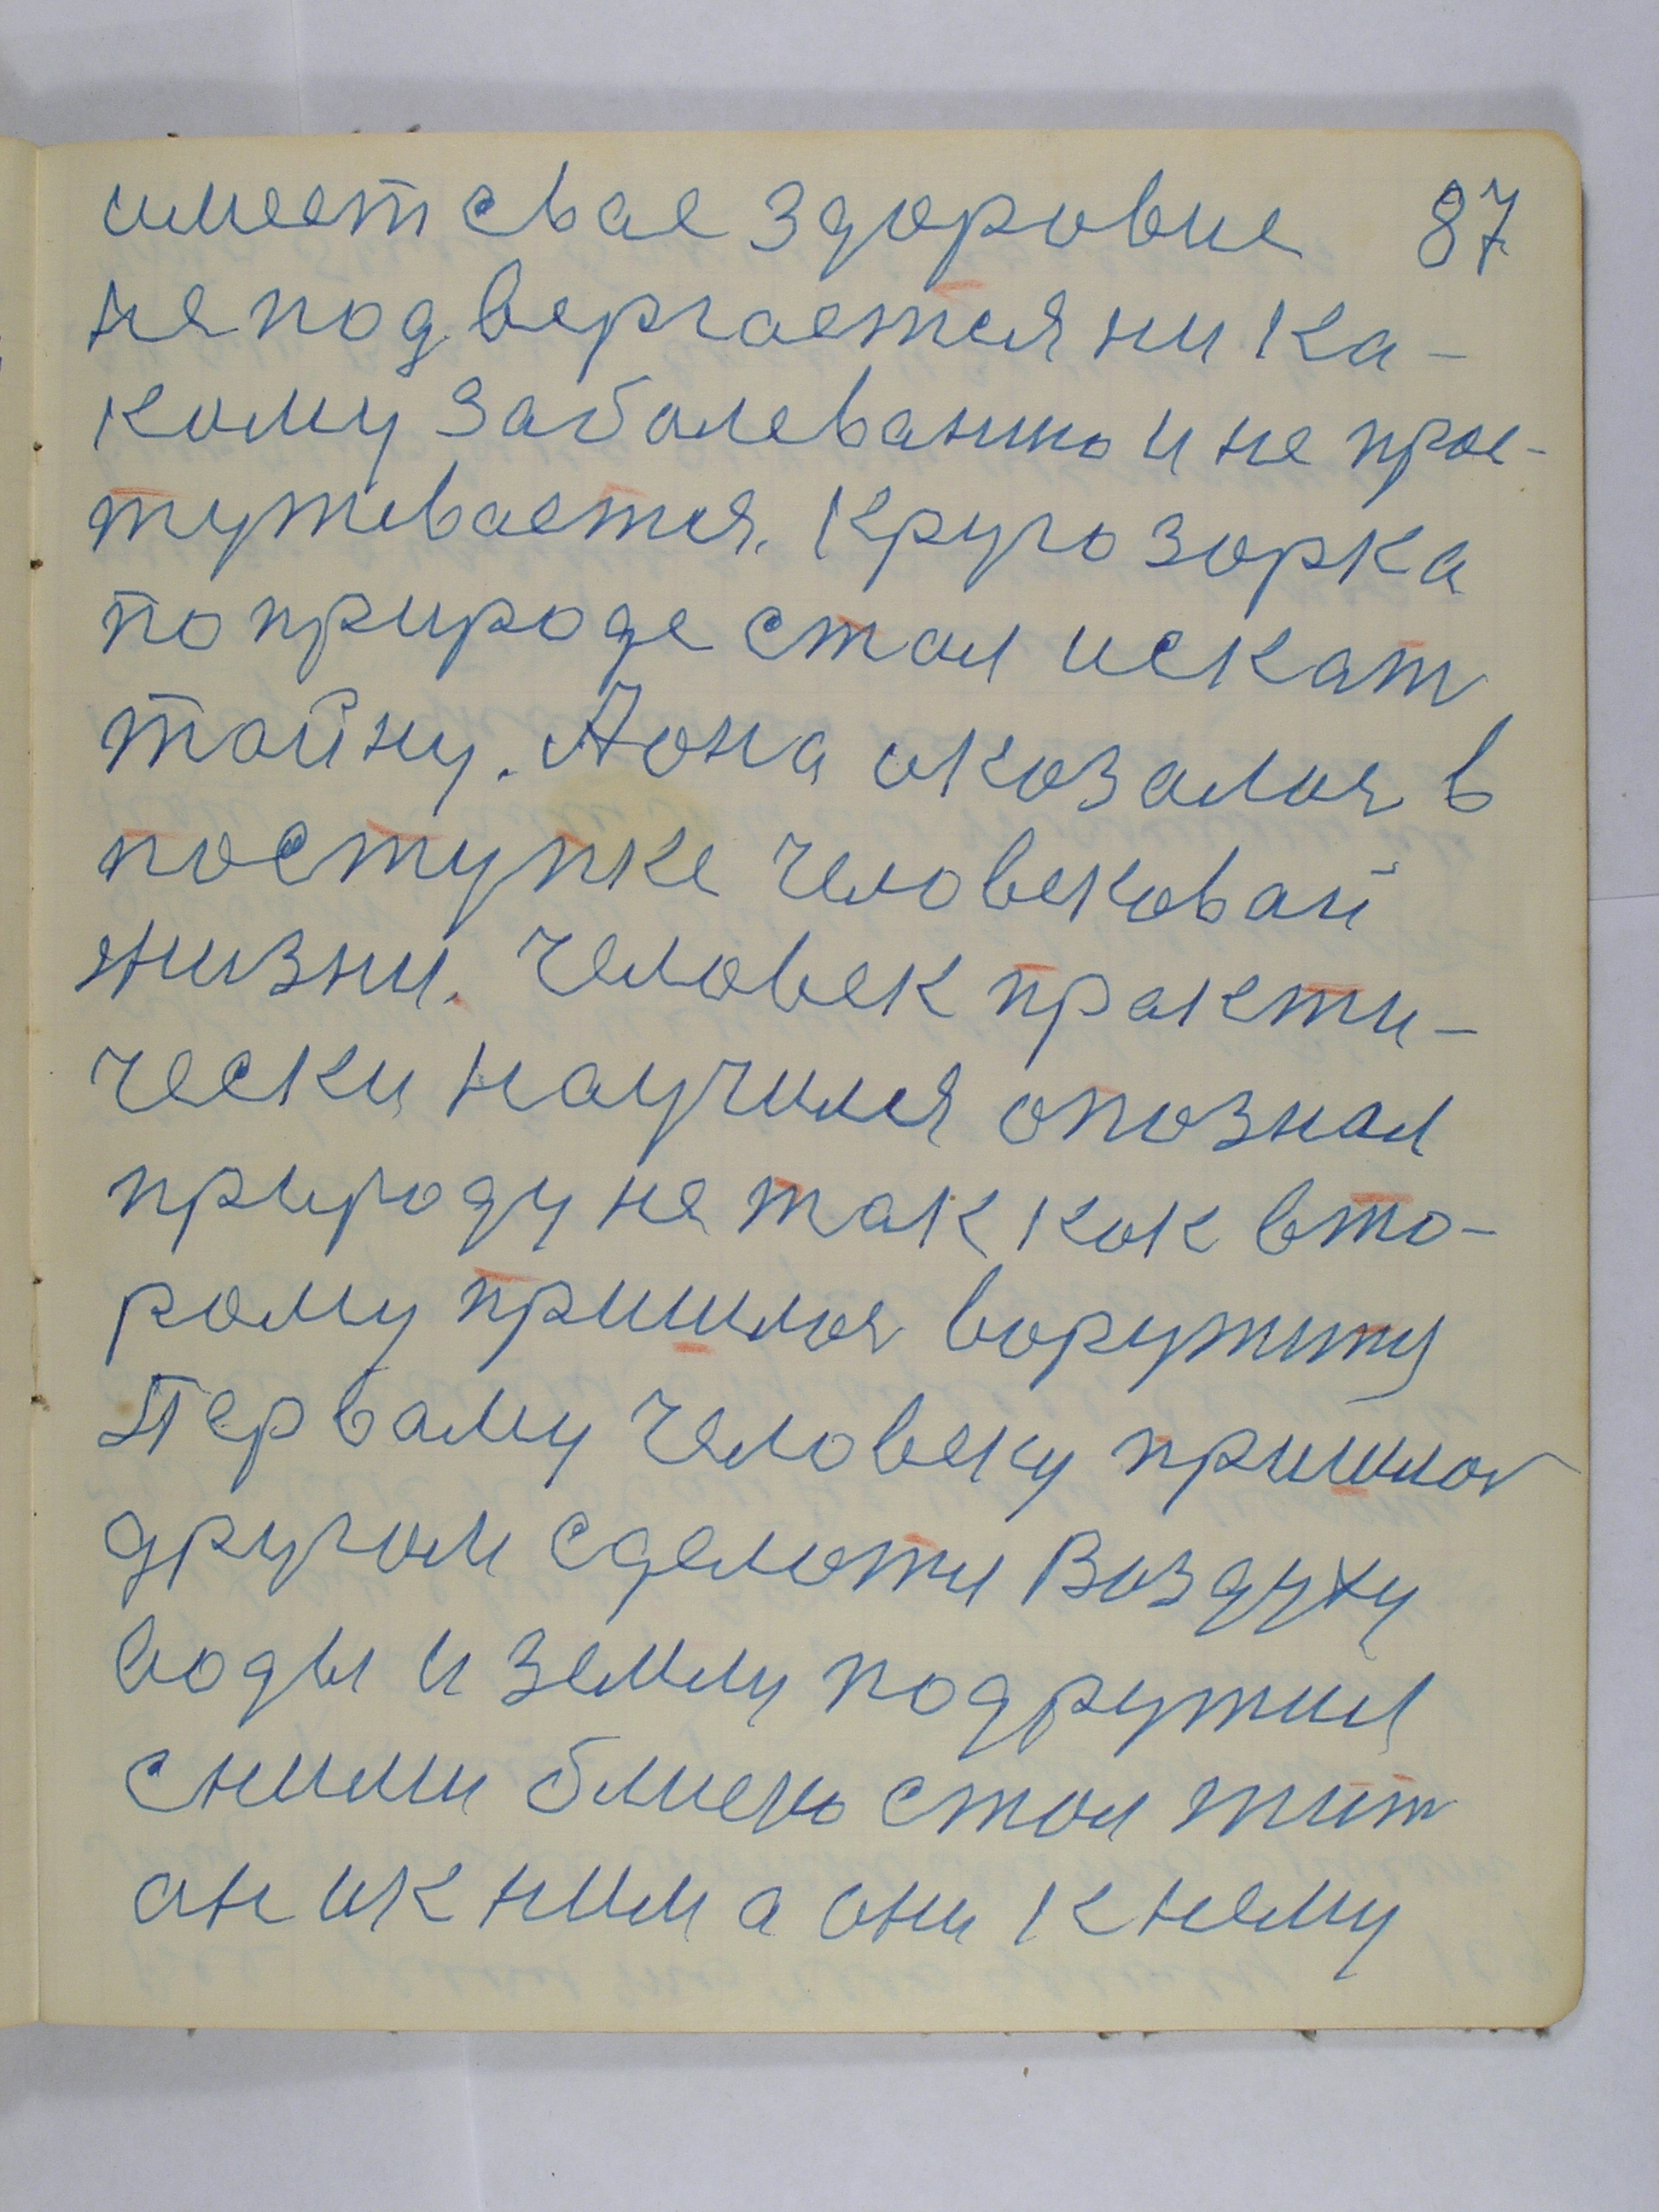 имеет свае здоровие 87
не подвергается ни ка-
кому заболеванию и не прос-
туживается. Кругозорка
по природе стал искат
тайну. А она оказалоя в
поступке человековай
жизни. Человек практи-
чески научился опознал
природу не так как вто-
рому пришлоя воружить
Первому человеку пришлоя
другом сделоти Воздуху
воды и землю подружил
сними близко стал жит
он ик ним а они к нему